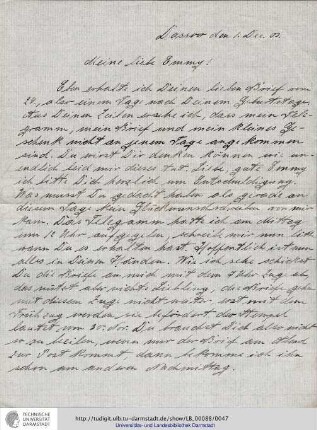 Dassow den 1. Dez. 02.
Meine liebe Emmy!
Eben erhalte ich Deinen lieben Brief vom
29, also einen Tag nach Deinem Geburtstage.
Aus Deinen Zeilen ersehe ich, dass mein Tele-
gramm, mein Brief und mein kleines Ge-
schenk nicht an jenem Tage angekommen
sind. Du wirst Dir denken können wie un-
endlich leid mir dieses tut. Liebe, gute Emmy
ich bitte Dich herzlich um Entschuldigung.
Was musst Du gedacht haben als gerade an
diesem Tage kein Glückwunschschreiben von mir
kam. Das Telegramm hatte ich am Mittag
um 12 Uhr aufgegeben, schreib mir nur bitte
wann Du es erhalten hast. Hoffentlich ist nun
alles in Deinen Händen. Wie ich sehe schickst
Du die Briefe an mich mit dem Uhr Zug ab
das nützt aber nichts Liebling, die Briefe gehen
mit diesem Zuge nicht weiter erst mit dem
Frühzug werden sie befördert der Stempel
lautet vom 30. Du brauchst Dich also nicht
so zu beeilen, wenn nur der Brief am Abend
zur Post kommt, dann bekomme ich ihn
schon am anderen Nachmittag.
TECHNISCHE
UNIVERSITÄT
DARMSTADT
http://tudigit.ulb.tu-darmstadt.de/show/LB_00088/0047
Universitäts- und Landesbibliothek Darmstadt